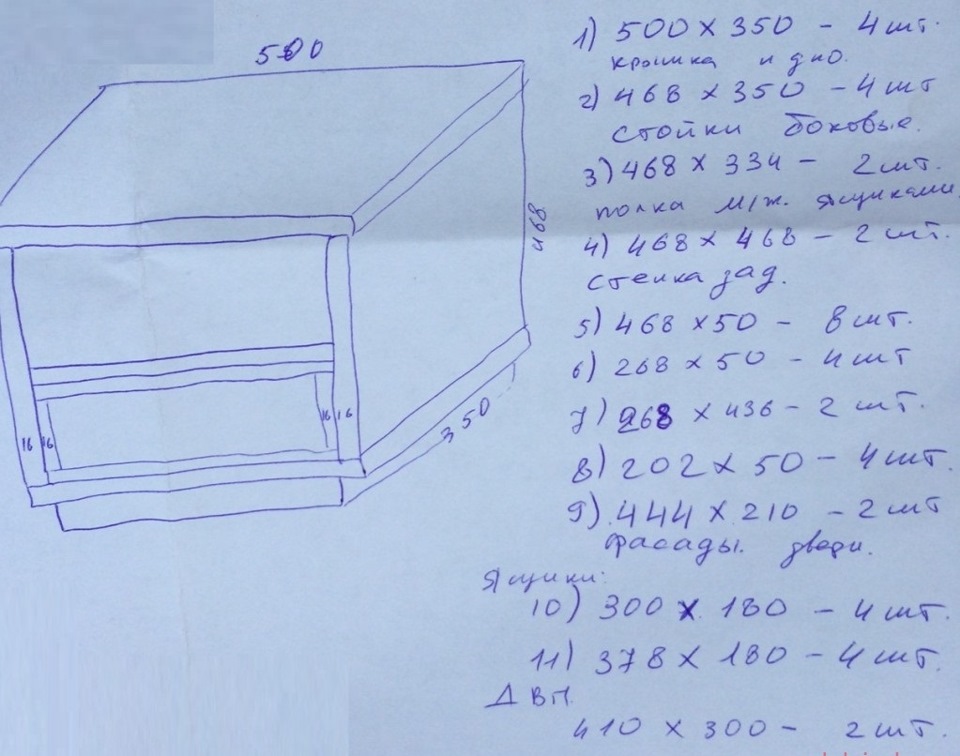 500
1) 500 х 350 - 4 шт.
крышка и дно.
2) 468 х 350 - 4 шт
стойки боковые.
3) 468 х 334 - 2 шт.
полка м/ж. ящиками
468
4) 468 х 468 - 2 шт.
стенка зад.
5) 468 х 50 - 8 шт.
6) 268 х 50 - 4 шт
7) 268 х 436 - 2 шт.
350
16 16 16 16
8) 202 х 50 - 4 шт.
9) 444 х 210 - 2 шт
фасады. двери.
Ящики:
10) 300 х 180 - 4 шт.
11) 378 х 180 - 4 шт.
ДВП.
410 х 300 - 2 шт.